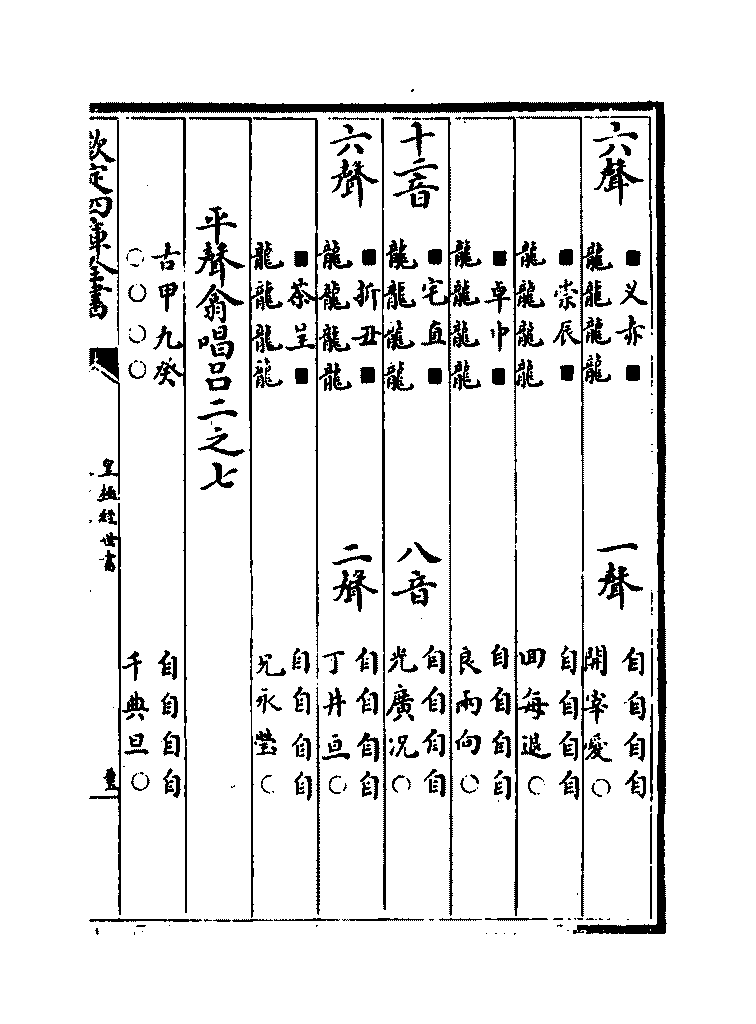 六聲
■叉赤■
龍龍龍龍
一聲
自自自自
開宰愛○
■崇辰■
龍龍龍龍
自自自自
回每退○
■卓中■
龍龍龍龍
自自自自
良兩向○
十二音
■宅直■
龍龍龍龍
八音
自自自自
光廣况○
六聲
■拆丑■
龍龍龍龍
二聲
自自自自
丁井亘○
■茶呈■
龍龍龍龍
自自自自
兄永瑩○
平聲翕唱呂二之七
古甲九癸
○○○○
自自自自
千典旦○
欽定四庫全書
皇極經世書